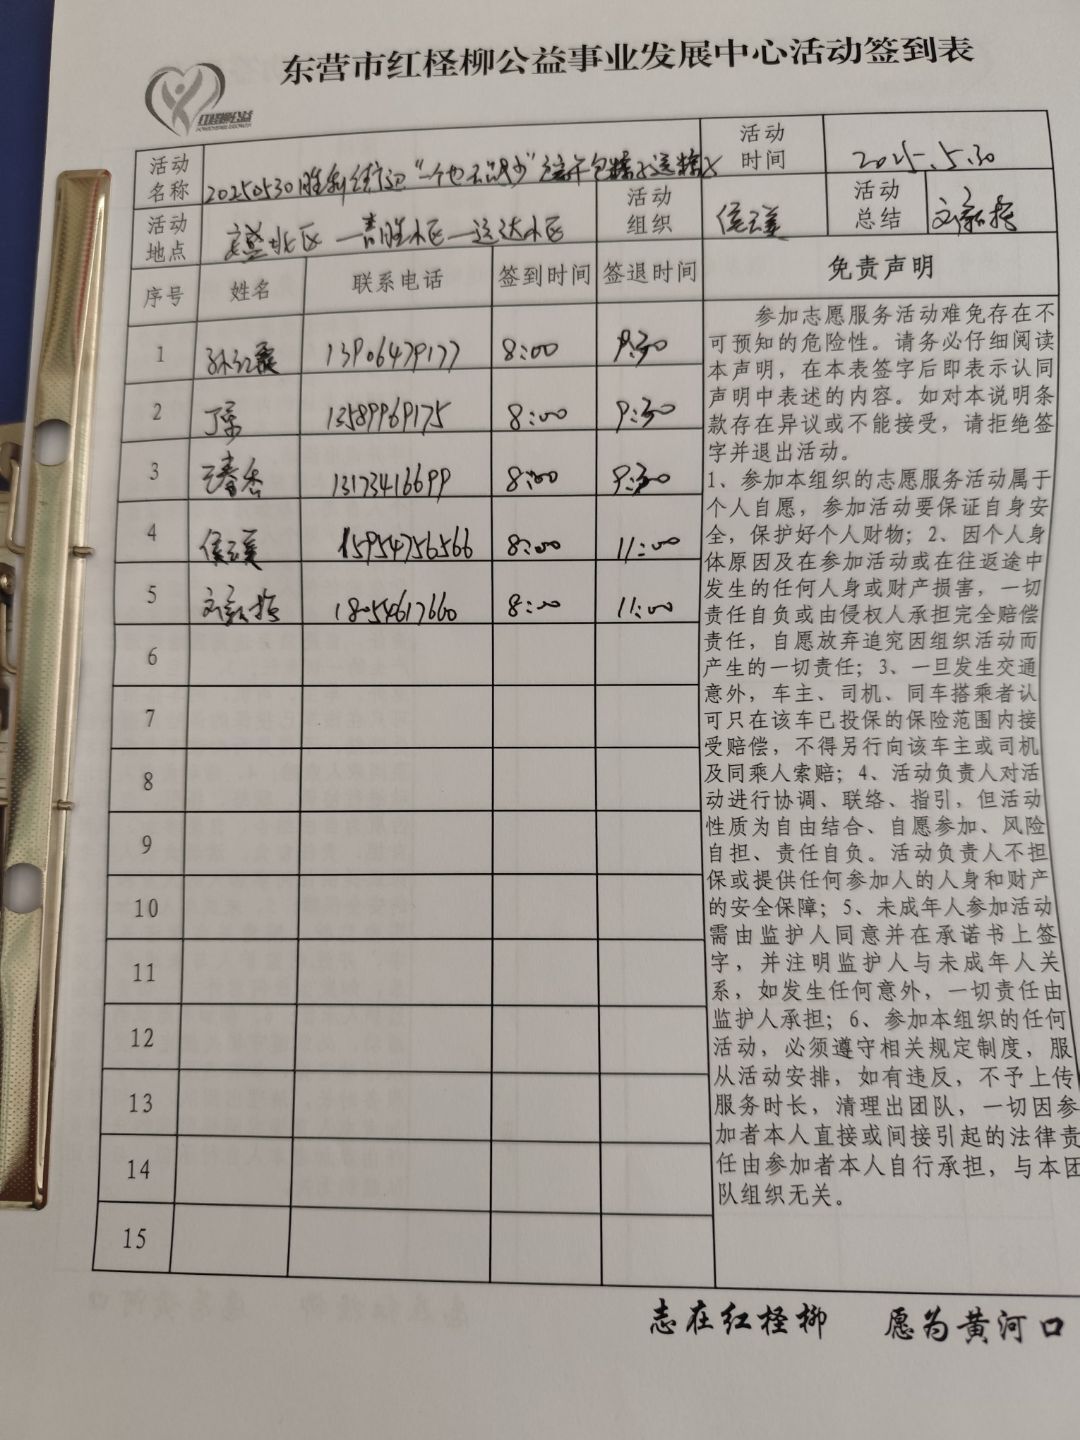 东营市红柽柳公益事业发展中心活动签到表
红柽柳公益
活动名称 20250530胜利街道"一个也不能少"端午包粽子送粽子 活动时间 2025.5.30
活动地点 北区—青胜小区—运达小区 活动组织 侯云美 活动总结 刘新振
序号 姓名 联系电话 签到时间 签退时间 免责声明
1 孙红霞 13906479177 8:00 9:30
2 丁荣 13589969175 8:00 9:30
3 王春香 13173416699 8:00 9:30
4 侯云美 15954756566 8:00 11:00
5 刘新振 18054617660 8:00 11:00
6
7
8
9
10
11
12
13
14
15
参加志愿服务活动难免存在不
可预知的危险性。请务必仔细阅读
本声明，在本表签字后即表示认同
声明中表述的内容。如对本说明条
款存在异议或不能接受，请拒绝签
字并退出活动。
1、参加本组织的志愿服务活动属于
个人自愿，参加活动要保证自身安
全，保护好个人财物；2、因个人身
体原因及在参加活动或在往返途中
发生的任何人身或财产损害，一切
责任自负或由侵权人承担完全赔偿
责任，自愿放弃追究因组织活动而
产生的一切责任；3、一旦发生交通
意外，车主、司机、同车搭乘者认
可只在该车已投保的保险范围内接
受赔偿，不得另行向该车主或司机
及同乘人索赔；4、活动负责人对活
动进行协调、联络、指引，但活动
性质为自由结合、自愿参加、风险
自担、责任自负。活动负责人不担
保或提供任何参加人的人身和财产
的安全保障；5、未成年人参加活动
需由监护人同意并在承诺书上签
字，并注明监护人与未成年人关
系，如发生任何意外，一切责任由
监护人承担；6、参加本组织的任何
活动，必须遵守相关规定制度，服
从活动安排，如有违反，不予上传
服务时长，清理出团队，一切因参
加者本人直接或间接引起的法律责
任由参加者本人自行承担，与本团
队组织无关。
志在红柽柳 愿为黄河口